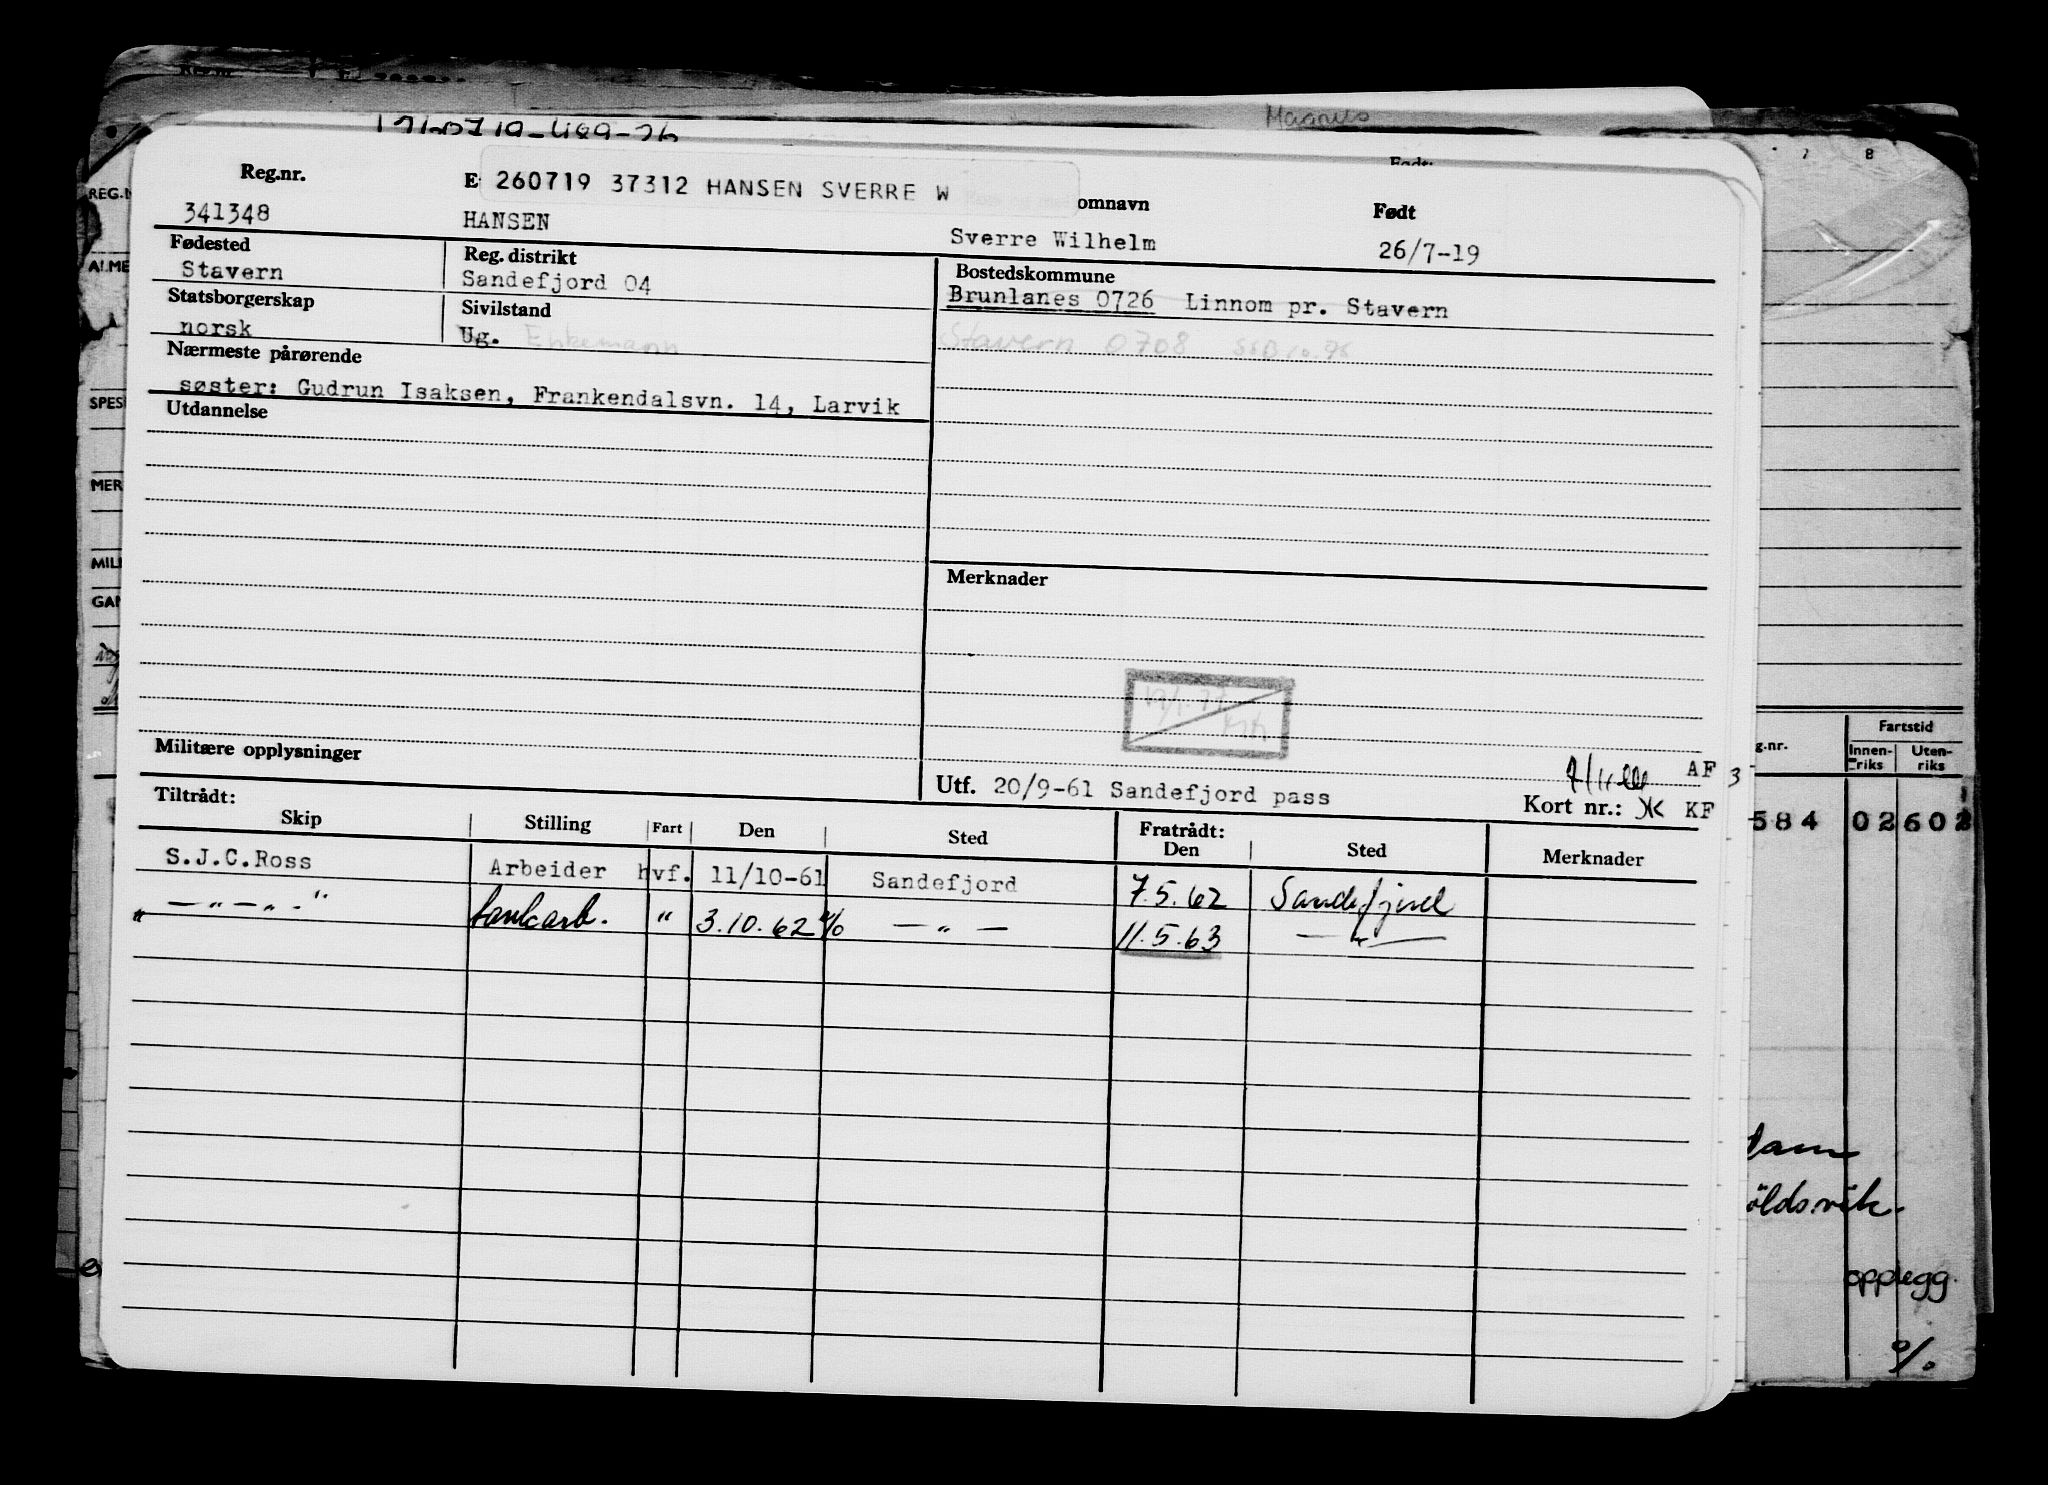 Magnus
7 8
REG.N
Reg.nr. E 260719 37312 HANSEN SVERRE W omnavn Født
341348 HANSEN Sverre Wilhelm 26/7-19
Fødested Reg. distrikt Bostedskommune
ALME Stavern Sandefjord 04 Brunlanes 0726 Linnom pr. Stavern
Statsborgerskap Sivilstand
norsk Ug. Enkemann Stavern 0708
Nærmeste pårørende
søster: Gudrun Isaksen, Frankendalsvn. 14, Larvik
SPES Utdannelse
MER
MILI Merknader
GAN
Militære opplysninger
Utf. 20/9-61 Sandefjord pass AF 3
Kort nr.: KF
g.nr. Fartstid
Innen-riks Uten-riks
584 02 602
Tiltrådt: Fratrådt:
Skip Stilling Fart Den Sted Den Sted Merknader
S.J.C.Ross Arbeider hvf. 11/10-61 Sandefjord 7.5.62 Sandefjord
" — " — " - " tankarb. " 3.10.62 % — " — 11.5.63 — " —
dam
öldsvik.
opplegg.
%